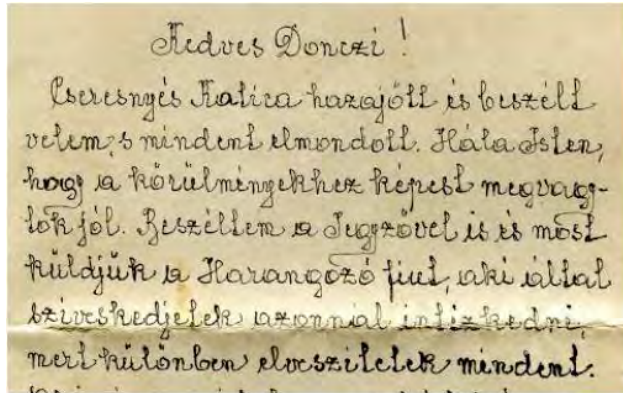 Kedves Donczi!
Cseresnyés Katica hazajött és beszélt
velem, s mindent elmondott. Hála Isten,
hogy a körülményekhez képest megvagy-
tok jól. Beszéltem a Jegyzővel is és most
küldjük a Harangozó fiut, aki által
sziveskedjetek azonnal intézkedni,
mert különben elveszitetek mindent.